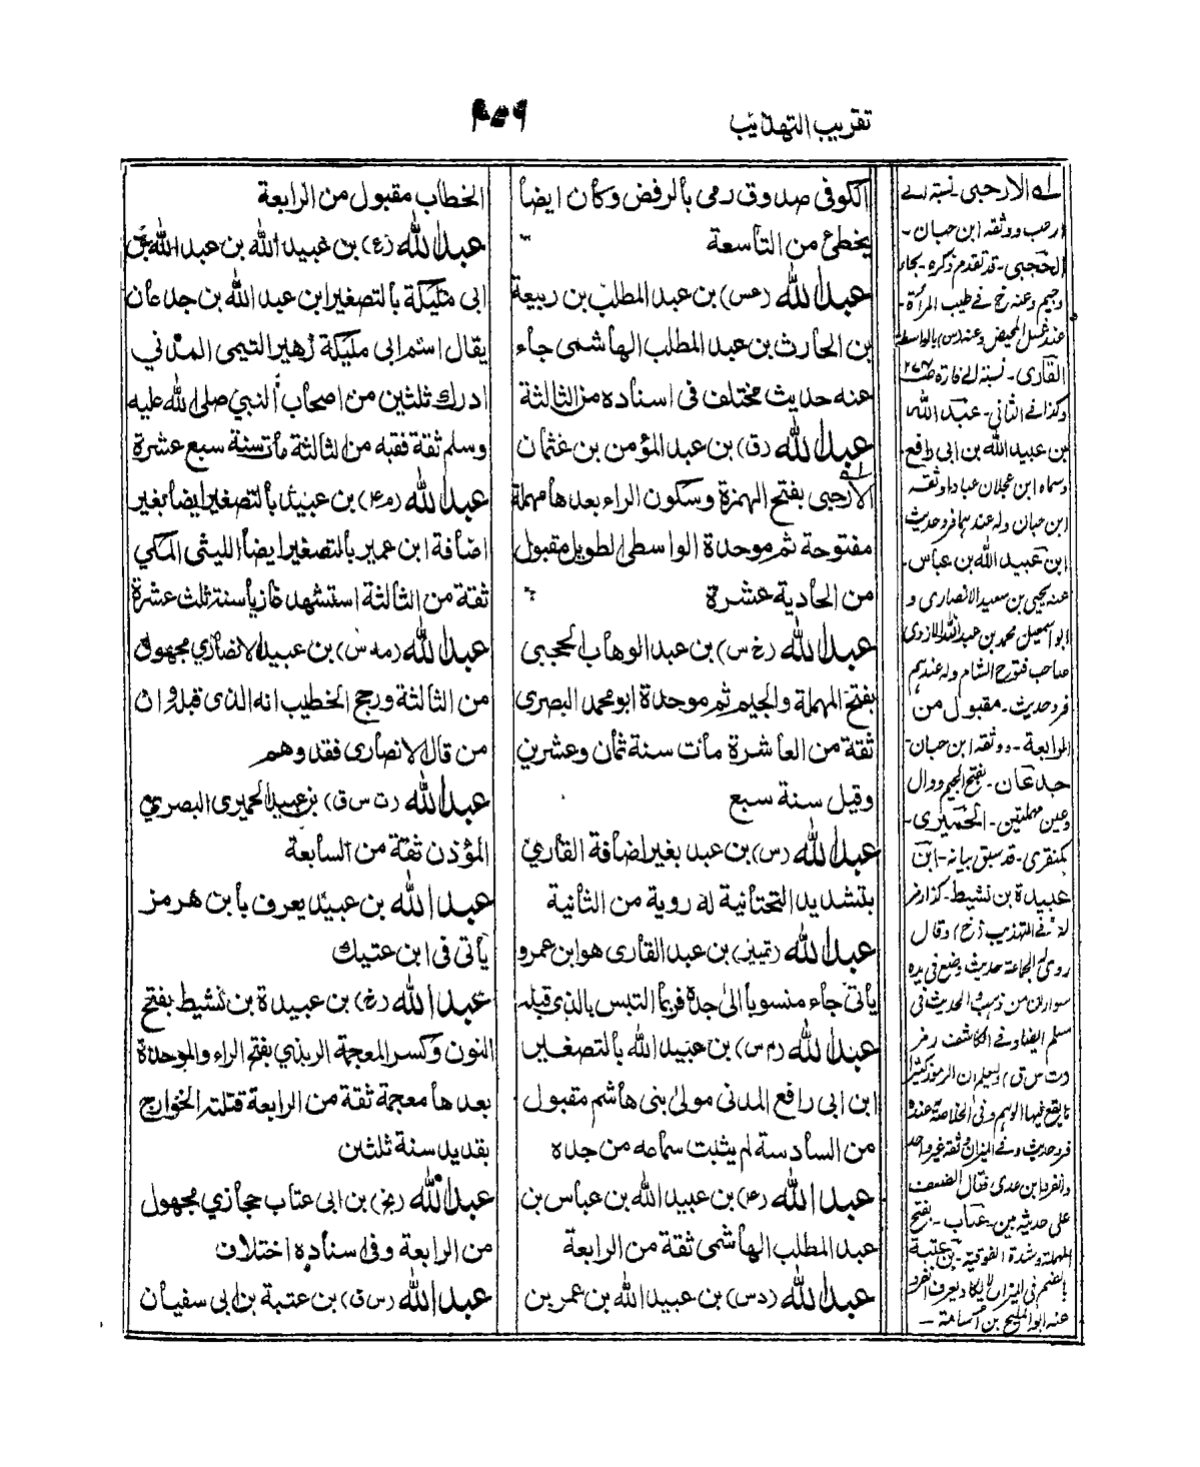 تقريب التهذيب
٢٥٩
الكوفى صدوق رمى بالرفض وكان ايضا
يخطئ من التاسعة
عبد الله (عس) بن عبد المطلب بن ربيعة
بن الحارث بن عبد المطلب الهاشمى جاء
عنه حديث مختلف فى اسناده من الثالثة
عبد الله (ق) بن عبد المؤمن بن عثمان
الارحبى بفتح الهمزة وسكون الراء بعدها مهملة
مفتوحة ثم موحدة الواسطى الطويل مقبول
من الحادية عشرة
عبد الله (خ س) بن عبد الوهاب الحجبى
بفتح المهملة والجيم ثم موحدة ابو محمد البصرى
ثقة من العاشرة مات سنة ثمان وعشرين
وقيل سنة سبع
عبد الله (س) بن عبد بغير اضافة القارى
بتشديد التحتانية له روية من الثانية
عبد الله (تمييز) بن عبد القارى هو ابن عمرو
يأتى جاء منسوبا الى جده فربما التبس بالذى قبله
عبد الله (م س) بن عبيد الله بالتصغير
ابن ابى رافع المدنى مولى بنى هاشم مقبول
من السادسة لم يثبت سماعه من جده
عبد الله (ع) بن عبيد الله بن عباس بن
عبد المطلب الهاشمى ثقة من الرابعة
عبد الله (د س) بن عبيد الله بن عمر بن
الخطاب مقبول من الرابعة
عبد الله (ع) بن عبيد الله بن عبد الله بن
ابى مليكة بالتصغير ابن عبد الله بن جدعان
يقال اسم ابى مليكة زهير التيمى المدنى
ادرك ثلثين من اصحاب النبي صلى الله عليه
وسلم ثقة فقيه من الثالثة مات سنة سبع عشرة
عبد الله (م ع) بن عبيد بالتصغير ايضا بغير
اضافة ابن عمير بالتصغير ايضا الليثى المكي
ثقة من الثالثة استشهد غازيا سنة ثلث عشرة
عبد الله (مد س) بن عبيد الانصاري مجهول
من الثالثة ورجح الخطيب انه الذى قبله وان
من قال الانصارى فقد وهم
عبد الله (ت س ق) بن عبيد الحميرى البصري
المؤذن ثقة من السابعة
عبد الله بن عبيد يعرف بابن هرمز
يأتى فى ابن عتيك
عبد الله (خ) بن عبيدة بن نشيط بفتح
النون وكسر المعجمة الربذي بفتح الراء والموحدة
بعدها معجمة ثقة من الرابعة قتلته الخوارج
بقديد سنة ثلثين
عبد الله (بخ) بن ابى عتاب حجازي مجهول
من الرابعة وفى اسناده اختلاف
عبد الله (س ق) بن عتبة بن ابى سفيان
له الارحبى نسبة الى
ارحب ووثقه ابن حبان -
الحجبى - قد تقدم ذكره بحاء
وجيم وعنه خ فى طيب المرأة
عند غسل المحيض وعنه (س) بالواسطة
القارى - نسبة الى قارة
وكذا فى الثانى - عبد الله
بن عبيد الله بن ابى رافع
وسماه ابن عجلان عبادا وثقه
ابن حبان وله عندهما فرد حديث
ابن عبيد الله بن عباس -
عنه يحيى بن سعيد الانصارى و
ابو اسمعيل محمد بن عبد الله الازدى
صاحب فتوح الشام وله عندهم
فرد حديث - مقبول من
الرابعة - ووثقه ابن حبان -
جدعان - بفتح الجيم ودال
وعين مهملتين - الحميرى -
كمنقرى - قد سبق بيانه - ابن
عبيدة بن نشيط - كذا رمز
له فى التهذيب (خ) وقال
روى له الجماعة حديث وضع فى يده
سوارين من ذهب الحديث فى
مسلم ايضا وفى الكاشف رمز
(ت س ق) وليعلم ان الرموز كثيرا
ما يقع فيها الوهم وفى الخلاصة عنده
فرد حديث وفى الميزان وثقه غير واحد
وانفرد ابن عدى فقال الضعف
على حديثه بين - عتاب - بفتح
المهملة وشدة الفوقية - بن عتبة
بالضم فى الميزان لا يكاد يعرف تفرد
عنه ابو المليح بن اسامة -